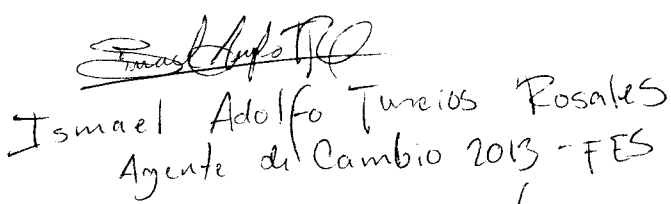 Ismael Adolfo Turcios Rosales
Agente de Cambio 2013 - FES